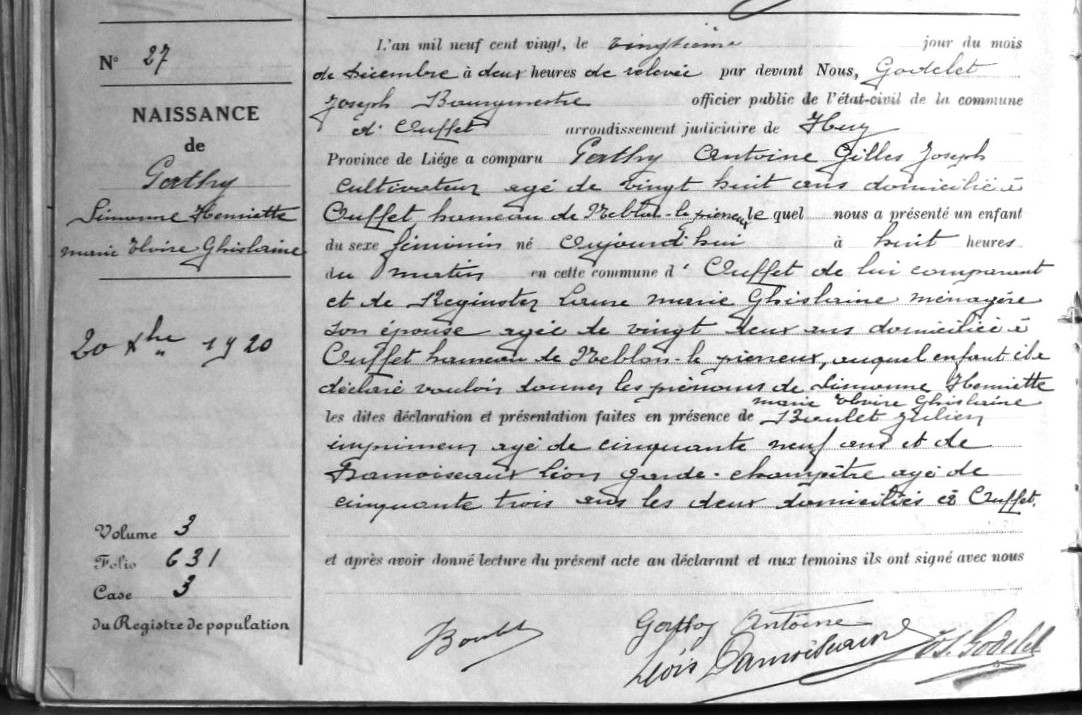 N° 27
NAISSANCE
de
Gathy
Simonne Henriette
marie Elvire Ghislaine
20 Xbre 1920
Volume 3
Folio 631
Case 3
du Registre de population
L'an mil neuf cent vingt, le vingtième jour du mois
de Décembre à deux heures de relevée par devant Nous, Godelet
Joseph Bourgmestre officier public de l'état-civil de la commune
d'Ouffet arrondissement judiciaire de Huy
Province de Liége a comparu Gathy Antoine Gilles Joseph
Cultivateur agé de vingt huit ans domicilié à
Ouffet hameau de Neblon-le pierreux le quel nous a présenté un enfant
du sexe féminin né aujourd'hui à huit heures
du matin en cette commune d'Ouffet de lui comparant
et de Reginster Laure marie Ghislaine ménagère
son épouse agée de vingt deux ans domiciliée à
Ouffet hameau de Neblon-le pierreux, auquel enfant il a
déclaré vouloir donner les prénoms de Simonne Henriette
marie Elvire Ghislaine
les dites déclaration et présentation faites en présence de Boulet Julien
imprimeur agé de cinquante neuf ans et de
Damoiseaux Léon garde-champître agé de
cinquante trois ans les deux domiciliés à Ouffet.
et après avoir donné lecture du présent acte au déclarant et aux temoins ils ont signé avec nous
Boulet
Gathy Antoine
Léon Damoiseaux
Js. Godelet